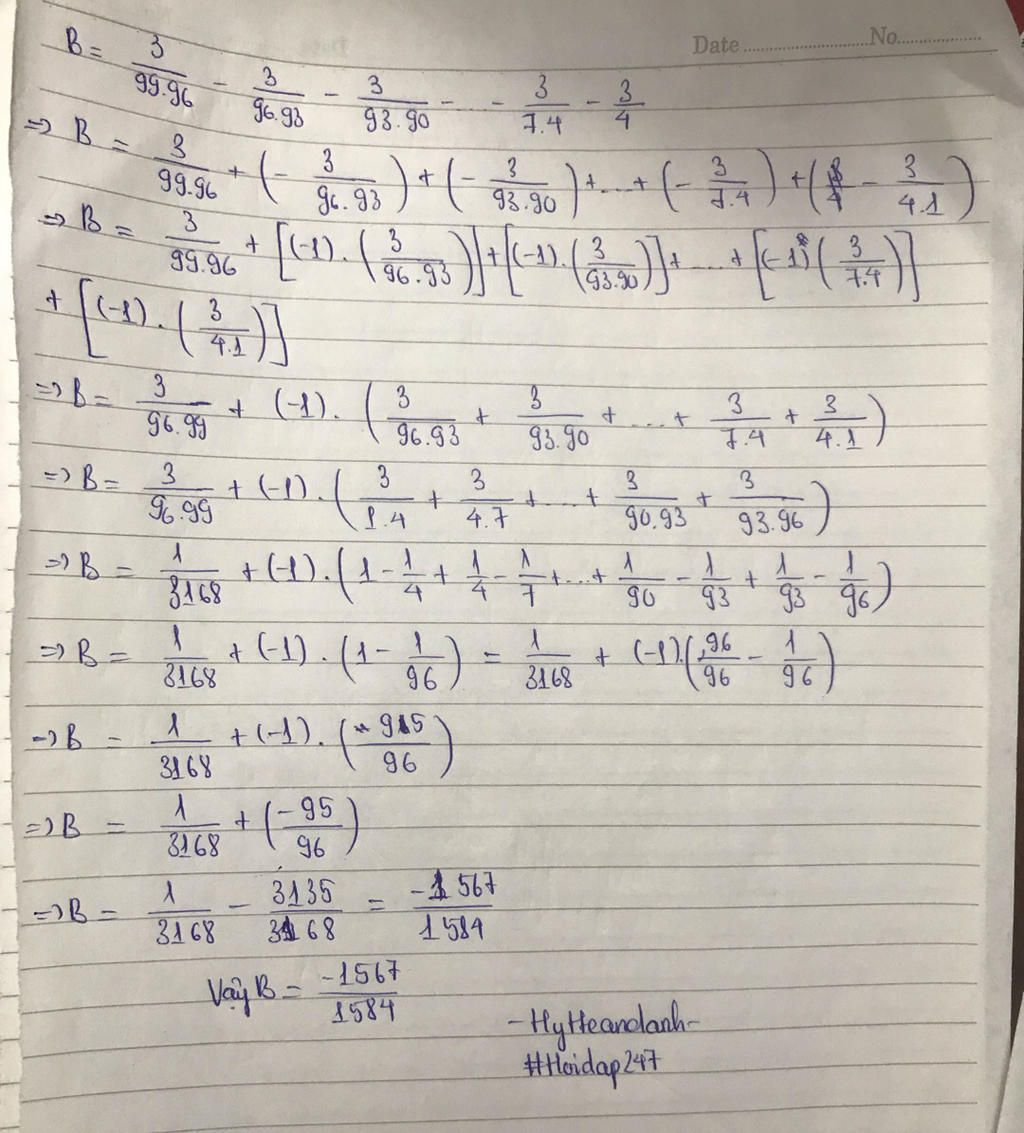 Date ........................ No. ................
B = 3/99.96 - 3/96.93 - 3/93.90 - ... - 3/7.4 - 3/4
=> B = 3/99.96 + (- 3/96.93) + (- 3/93.90) + ... + (- 3/7.4) + (- 3/4.1)
=> B = 3/99.96 + [(-1) . (3/96.93)] + [(-1) . (3/93.90)] + ... + [(-1) (3/7.4)]
+ [(-1) . (3/4.1)]
=> B = 3/96.99 + (-1) . (3/96.93 + 3/93.90 + ... + 3/7.4 + 3/4.1)
=> B = 3/96.99 + (-1) . (3/1.4 + 3/4.7 + ... + 3/90.93 + 3/93.96)
=> B = 1/3168 + (-1) . (1 - 1/4 + 1/4 - 1/7 + ... + 1/90 - 1/93 + 1/93 - 1/96)
=> B = 1/3168 + (-1) . (1 - 1/96) = 1/3168 + (-1) . (96/96 - 1/96)
=> B = 1/3168 + (-1) . (95/96)
=> B = 1/3168 + (-95/96)
=> B = 1/3168 - 3135/3168 = -1567/1584
Vậy B = -1567/1584
- HyHeandanh -
#Hoidap247